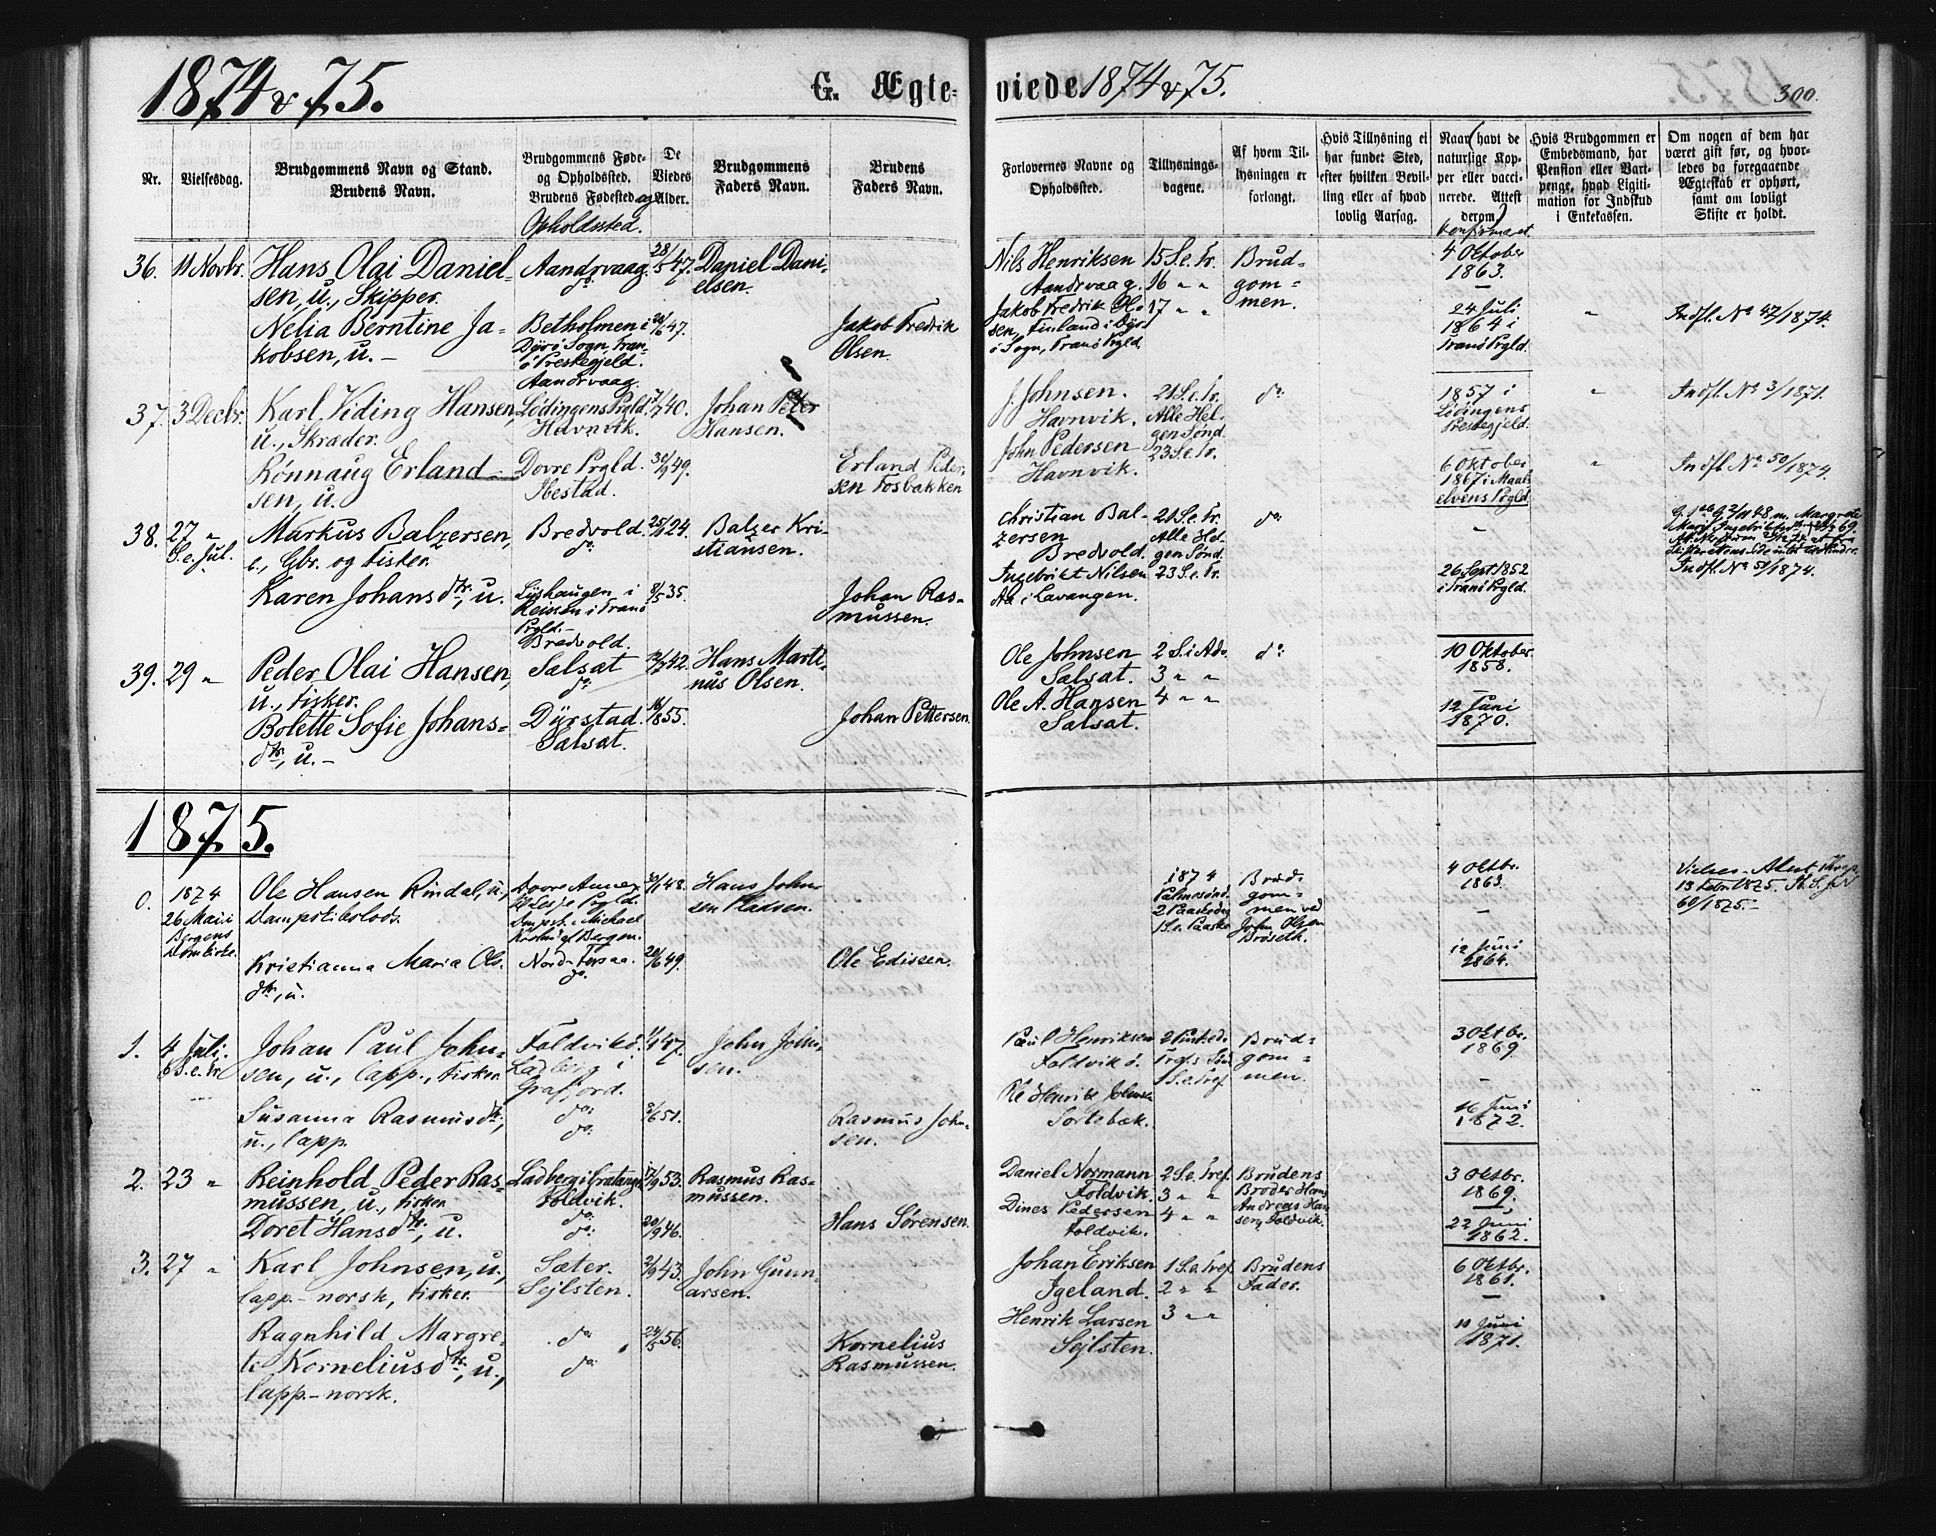 1874 & 75.
G. Ægte-
viede 1874 & 75.
300.
Nr.
Vielsesdag.
Brudgommens Navn og Stand.
Brudens Navn.
Brudgommens Føde-
og Opholdssted.
Brudens Fødested og
Opholdssted.
De
Viedes
Alder.
Brudgommens
Faders Navn.
Brudens
Faders Navn.
Forlovernes Navne og
Opholdssted.
Tillysnings-
dagene.
Af hvem Til-
lysningen er
forlangt.
Hvis Tillysning ei
har fundet Sted,
efter hvilken Bevil-
ling eller af hvad
lovlig Aarsag.
Naar (havt de
naturlige Kop-
per eller vacci-
nerede. Attest
derom)
konfirmeret
Hvis Brudgommen er
Embedsmand, har
Pension eller Vart-
penge, hvad Ligiti-
mation for Indskud
i Enkekassen.
Om nogen af dem har
været gift før, og hvor-
ledes da foregaaende
Ægteskab er ophørt,
samt om lovligt
Skifte er holdt.
36.
11 Novbr.
Hans Olai Daniel-
sen, u., Skipper.
Nelia Berntine Ja-
kobsen, u. –
Aandrvaag.
do.
Betholmen i
Dyrö Sogn, Tran-
ö Prestegjeld.
Aandrvaag.
28/5 47.
20/6 47.
Daniel Dani-
elsen.
Jakob Fredrik
Olsen.
Nils Henriksen
Aandrvaag.
Jakob Fredrik Ol-
sen, Finland i Dyr-
ö Sogn, Tranö Prgld.
15 S.e.Tr.
16 " "
17 " "
Brud-
gom-
men.
4 Oktober
1863.
–
24 Juli
1864 i
Tranö Prgld.
"
Indfl. No 47/1874.
37.
3 Decbr.
Karl Viding Hansen,
u., Skræder.
Rønnaug Erland-
sen, u.
Lødingens Prgld.
Havnvik.
Dovre Prgld.
Ibestad.
7/7 40.
30/9 49.
Johan Peter
Hansen.
Erland Peder-
sen Fosbakken
J. Johnsen.
Havnvik.
John Pedersen
Havnvik.
21 S.e.Tr.
Alle Hel-
gen Sønd.
23 S.e.Tr.
do.
1857 i
Lødingens
Prestegjeld.
–
6 Oktober
1867 i Maals-
elvens Prgld.
"
"
Indfl. No 3/1871.
Indfl. No 50/1874.
38.
27 "
S.e. Jul.
Markus Balzersen,
e., Gbr. og fisker.
Karen Johansdtr., u.
Bredvold.
do.
Lyshaugen i
Reisen i Tranö
Prgld. –
Bredvold.
25/9 24.
8/5 35.
Balzer Kri-
stiansen.
Johan Ras-
mussen.
Christian Bal-
zersen
Bredvold.
Ingebrikt Nilsen
Aa i Lavangen.
21 S.e.Tr.
Alle Hel-
gen Sønd.
23 S.e.Tr.
do.
–
26 Sept 1852
i Tranö Prgld.
Indfl. No 51/1874.
39.
29 "
Peder Olai Hansen,
u., fisker.
Bolette Sofie Johans-
dtr., u. –
Salsat
do.
Dyrstad.
Salsat.
2/2 42.
16/8 55.
Hans Marti-
nus Olsen.
Johan Pettersen.
Ole Johnsen
Salsat.
Ole A. Hansen
Salsat.
2 S. i Adv.
3 " "
4 " "
do.
10 Oktober
1858.
–
12 Juni
1870.
1875.
0.
1874
26 Mai i
Bergens
Domkirke.
Ole Hansen Rindal, u,
Dampskibslods.
Kristianna Maria Ols-
dtr., u.
Dovre Annex
til Lesje Prgld.
Dmpsk. Michael
Krohn af Bergen.
Nord-Forsaa.
do.
30/1 48.
20/6 49.
Hans John-
sen Pladsen.
Ole Edissen.
1874
Palmesønd.
2 Paaskedag
1 S.e. Paaske
Brud-
gom-
men ved
John Olsen
Brøseth.
4 Oktbr.
1863.
–
12 Juni
1864.
Vielses-Attest,
13 Febr 1875.
60/1875. –
1.
4 Juli.
6 S.e.Tr
Johan Paul John-
sen, u., lapp., fisker.
Susanna Rasmusdtr.,
u., lapp.
Foldvikö.
Ladberg i
Grafjord.
do.
do.
11/1 47.
8/6 51.
John John-
sen.
Rasmus John-
sen.
Paul Henriksen
Foldvikö.
Ole Henrik Johnsen
Sortebæk.
2 Pintsed.
Tref.s Søn
1 S.e.Tref.
Brud-
gom-
men.
3 Oktbr.
1869
–
16 Juni
1872.
2.
23 "
Reinhold Peder Ras-
mussen, u., fisker
Doret Hansdtr., u.
Ladberg i Gratangen
Foldvik.
do.
do.
17/9 53.
20/9 46.
Rasmus Ras-
mussen.
Hans Sørensen.
Daniel Normann
Foldvik.
Dines Pedersen
Foldvik.
2 S.e.Tref.
3 " "
4 " "
Brudens
Broder Hans
Andreas Han-
sen, Foldvik.
3 Oktbr.
1869.
–
22 Juni
1862.
3.
27 "
Karl Johnsen, u.,
lapp.–norsk, fisker.
Ragnhild Margre-
te Korneliusdtr., u.,
lapp.–norsk.
Sæter.
Sejlsten.
do.
do.
2/9 43.
24/5 56.
John Gunn-
arsen.
Kornelius
Rasmussen.
Johan Eriksen
Igeland.
Henrik Larsen
Sejlsten.
1 S.e.Tref.
2 " "
3 " "
Brudens
Fader.
6 Oktbr.
1861.
–
11 Juni
1871.